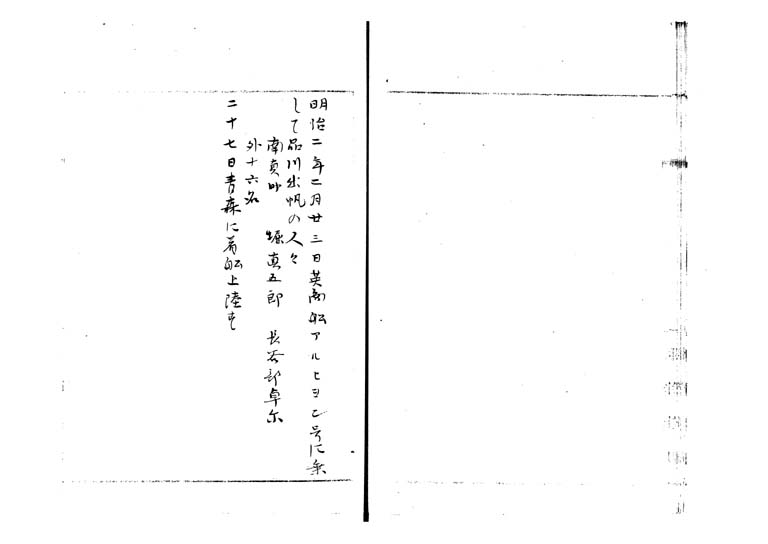 明治二年二月廿三日英商船アルヒヨン号に乗
して品川出帆の人々
南貞助　堀真五郎　長谷部卓爾
外十六名
二十七日青森に着船上陸す